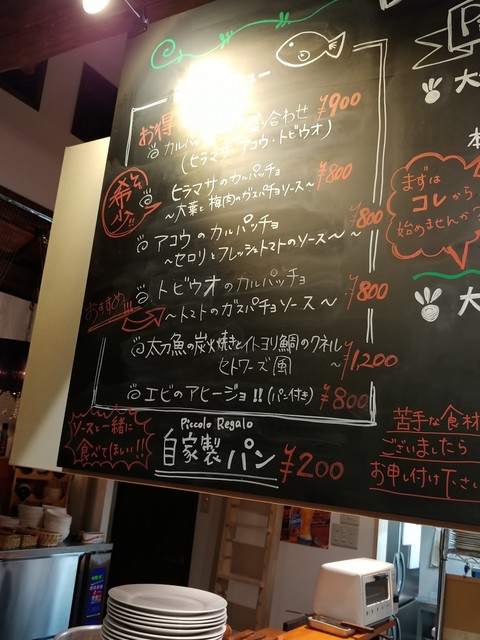 お得
カルパッチョ
合わせ ¥900
(ヒラマサ・アコウ・トビウオ)
希少!!
ヒラマサのカルパッチョ ¥800
~大葉と梅肉のガスパチョソース~
アコウのカルパッチョ ¥800
~セロリとフレッシュトマトのソース~
おすすめ!!
トビウオのカルパッチョ ¥800
~トマトのガスパチョソース~
太刀魚の炭火焼きとイトヨリ鯛のクネル
セトワーズ風~ ¥1,200
エビのアヒージョ!!(パン付き) ¥800
ソースと一緒に
食べてほしい!!
Piccolo Regalo
自家製パン ¥200
まずは
コレから
始めませんか?
苦手な食材
ございましたら
お申し付け下さい